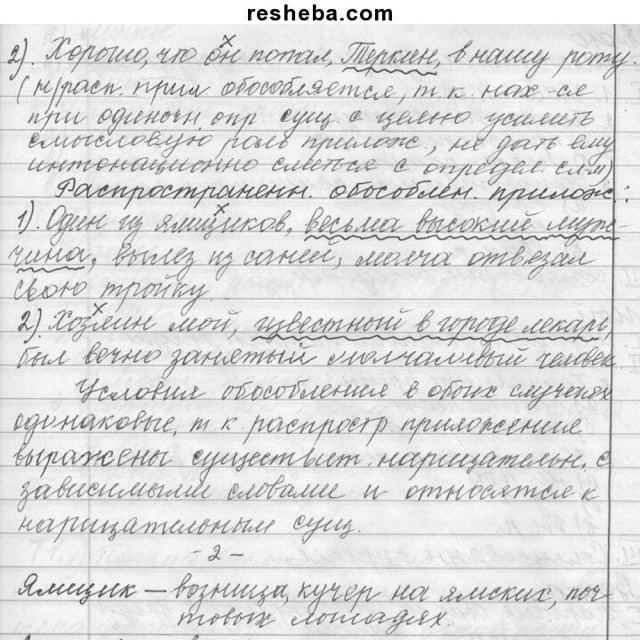 resheba.com
2). Хорошо, что он попал, Теркин, в нашу роту.
(н/расп. прил обособляется, т.к. нах-ся
при одиночн. опр. сущ. с целью усилить
смысловую роль прилож., не дать ему
интонационно слиться с определ. слм)
Распространенн. обособлен. прилож.:
1). Один из ямщиков, весьма высокий муж-
чина, вылез из саней, молча отвязал
свою тройку
2) Хозяин мой, известный в городе лекарь
был вечно занятый молчаливый человек.
Условия обособления в обоих случаях
одинаковые, т.к. распростр приложение
выражены существит. нарицательн. с
зависимыми словами и относятся к
нарицательным сущ.
- 2 -
Ямщик — возница, кучер на ямских, поч-
товых лошадях.